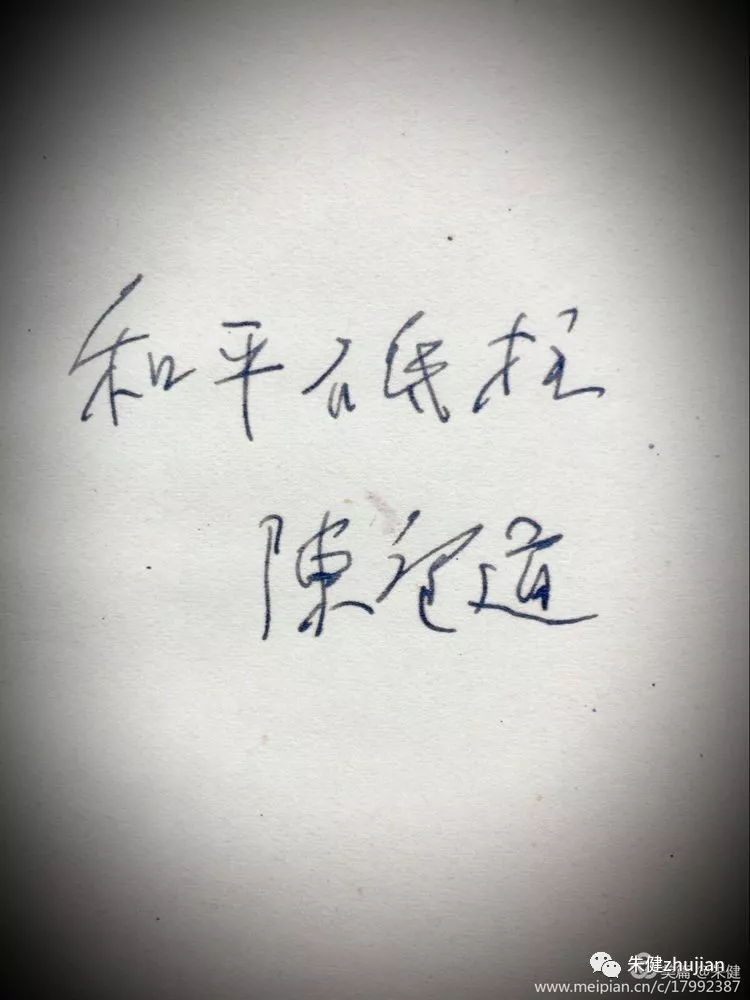 和平砥柱
陳望道
朱健zhujian
美篇 @朱健
www.meipian.cn/c/17992387